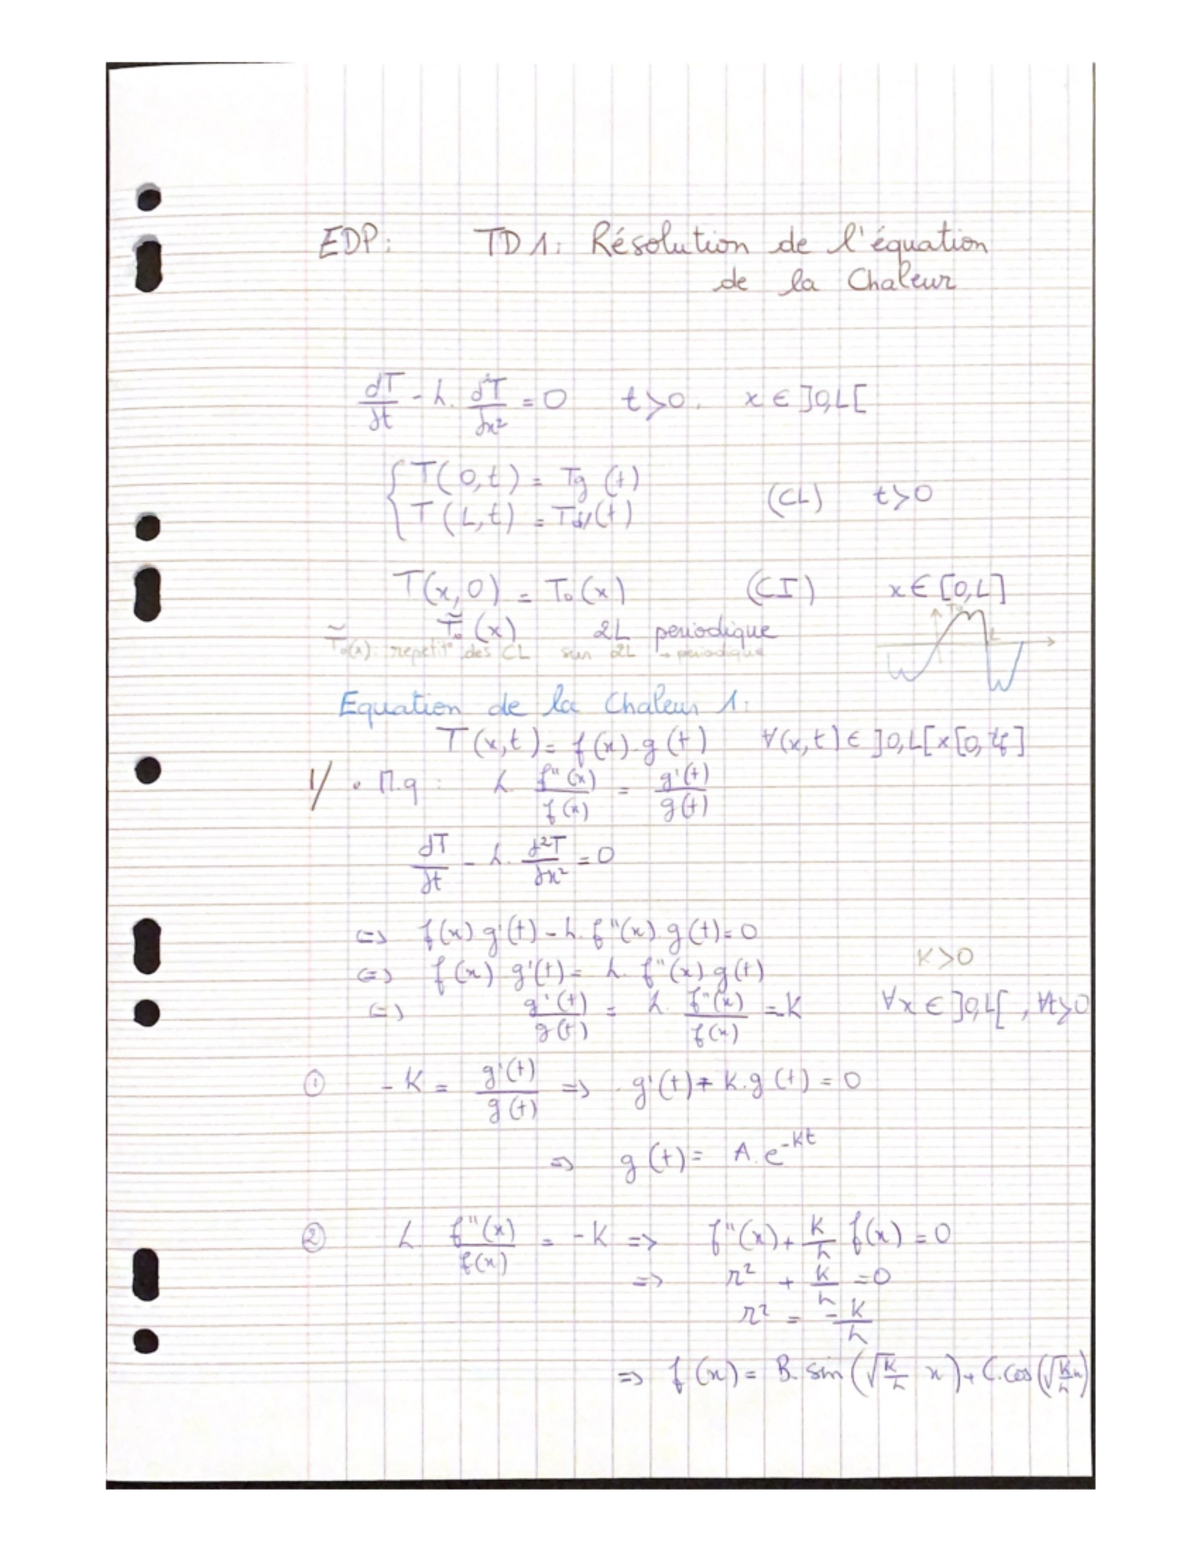 EDP: TD 1: Résolution de l'équation
de la Chaleur
∂T/∂t - h. ∂²T/∂x² = 0 t>0. x ∈ ]0,L[
{ T(0,t) = Tg (t)
T(L,t) = Td(t) (CL) t>0
T(x,0) = T₀(x) (CI) x ∈ [0,L]
T̃₀(x) 2L periodique
T̃₀(x): repetit° des CL sur 2L - periodique
Equation de la Chaleur 1:
T(x,t) = f(x).g(t) ∀(x,t) ∈ ]0,L[x[0,tf]
1/ • M.q: h f''(x)/f(x) = g'(t)/g(t)
∂T/∂t - h. ∂²T/∂x² = 0
<=> f(x) g'(t) - h. f''(x) g(t) = 0
<=> f(x) g'(t) = h f''(x) g(t) K>0
<=> g'(t)/g(t) = h. f''(x)/f(x) = -K ∀x ∈ ]0,L[ , ∀t>0
① -K = g'(t)/g(t) => g'(t) + K.g(t) = 0
=> g(t) = A.e^-Kt
② h f''(x)/f(x) = -K => f''(x) + K/h f(x) = 0
=> r² + K/h = 0
r² = -K/h
=> f(x) = B.sin(√K/h x) + C.cos(√K/h x)